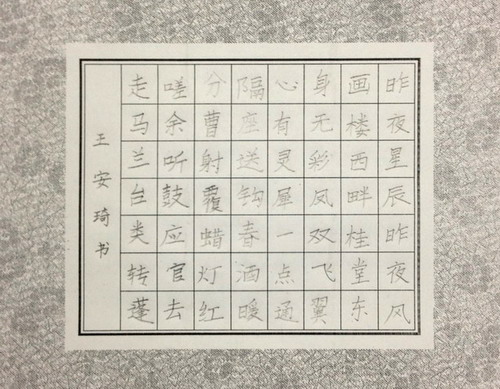 昨夜星辰昨夜风
画楼西畔桂堂东
身无彩凤双飞翼
心有灵犀一点通
隔座送钩春酒暖
分曹射覆蜡灯红
嗟余听鼓应官去
走马兰台类转蓬
王安琦书